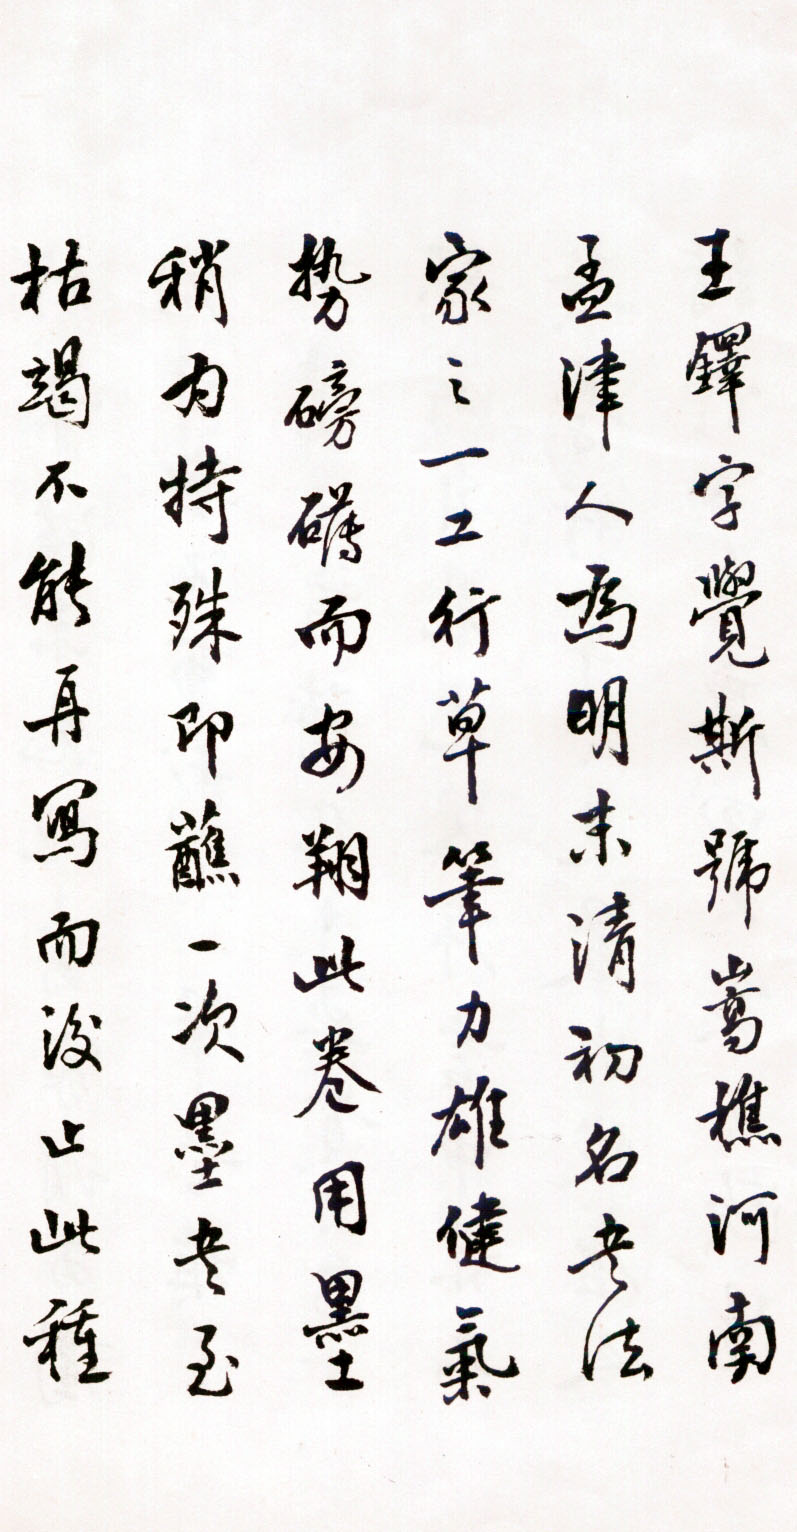 王鐸字覺斯號嵩樵河南
孟津人為明末清初名書法
家之一工行草筆力雄健氣
势磅礴而安翔此卷用墨
稍为特殊即蘸一次墨書至
枯竭不能再寫而後止此種